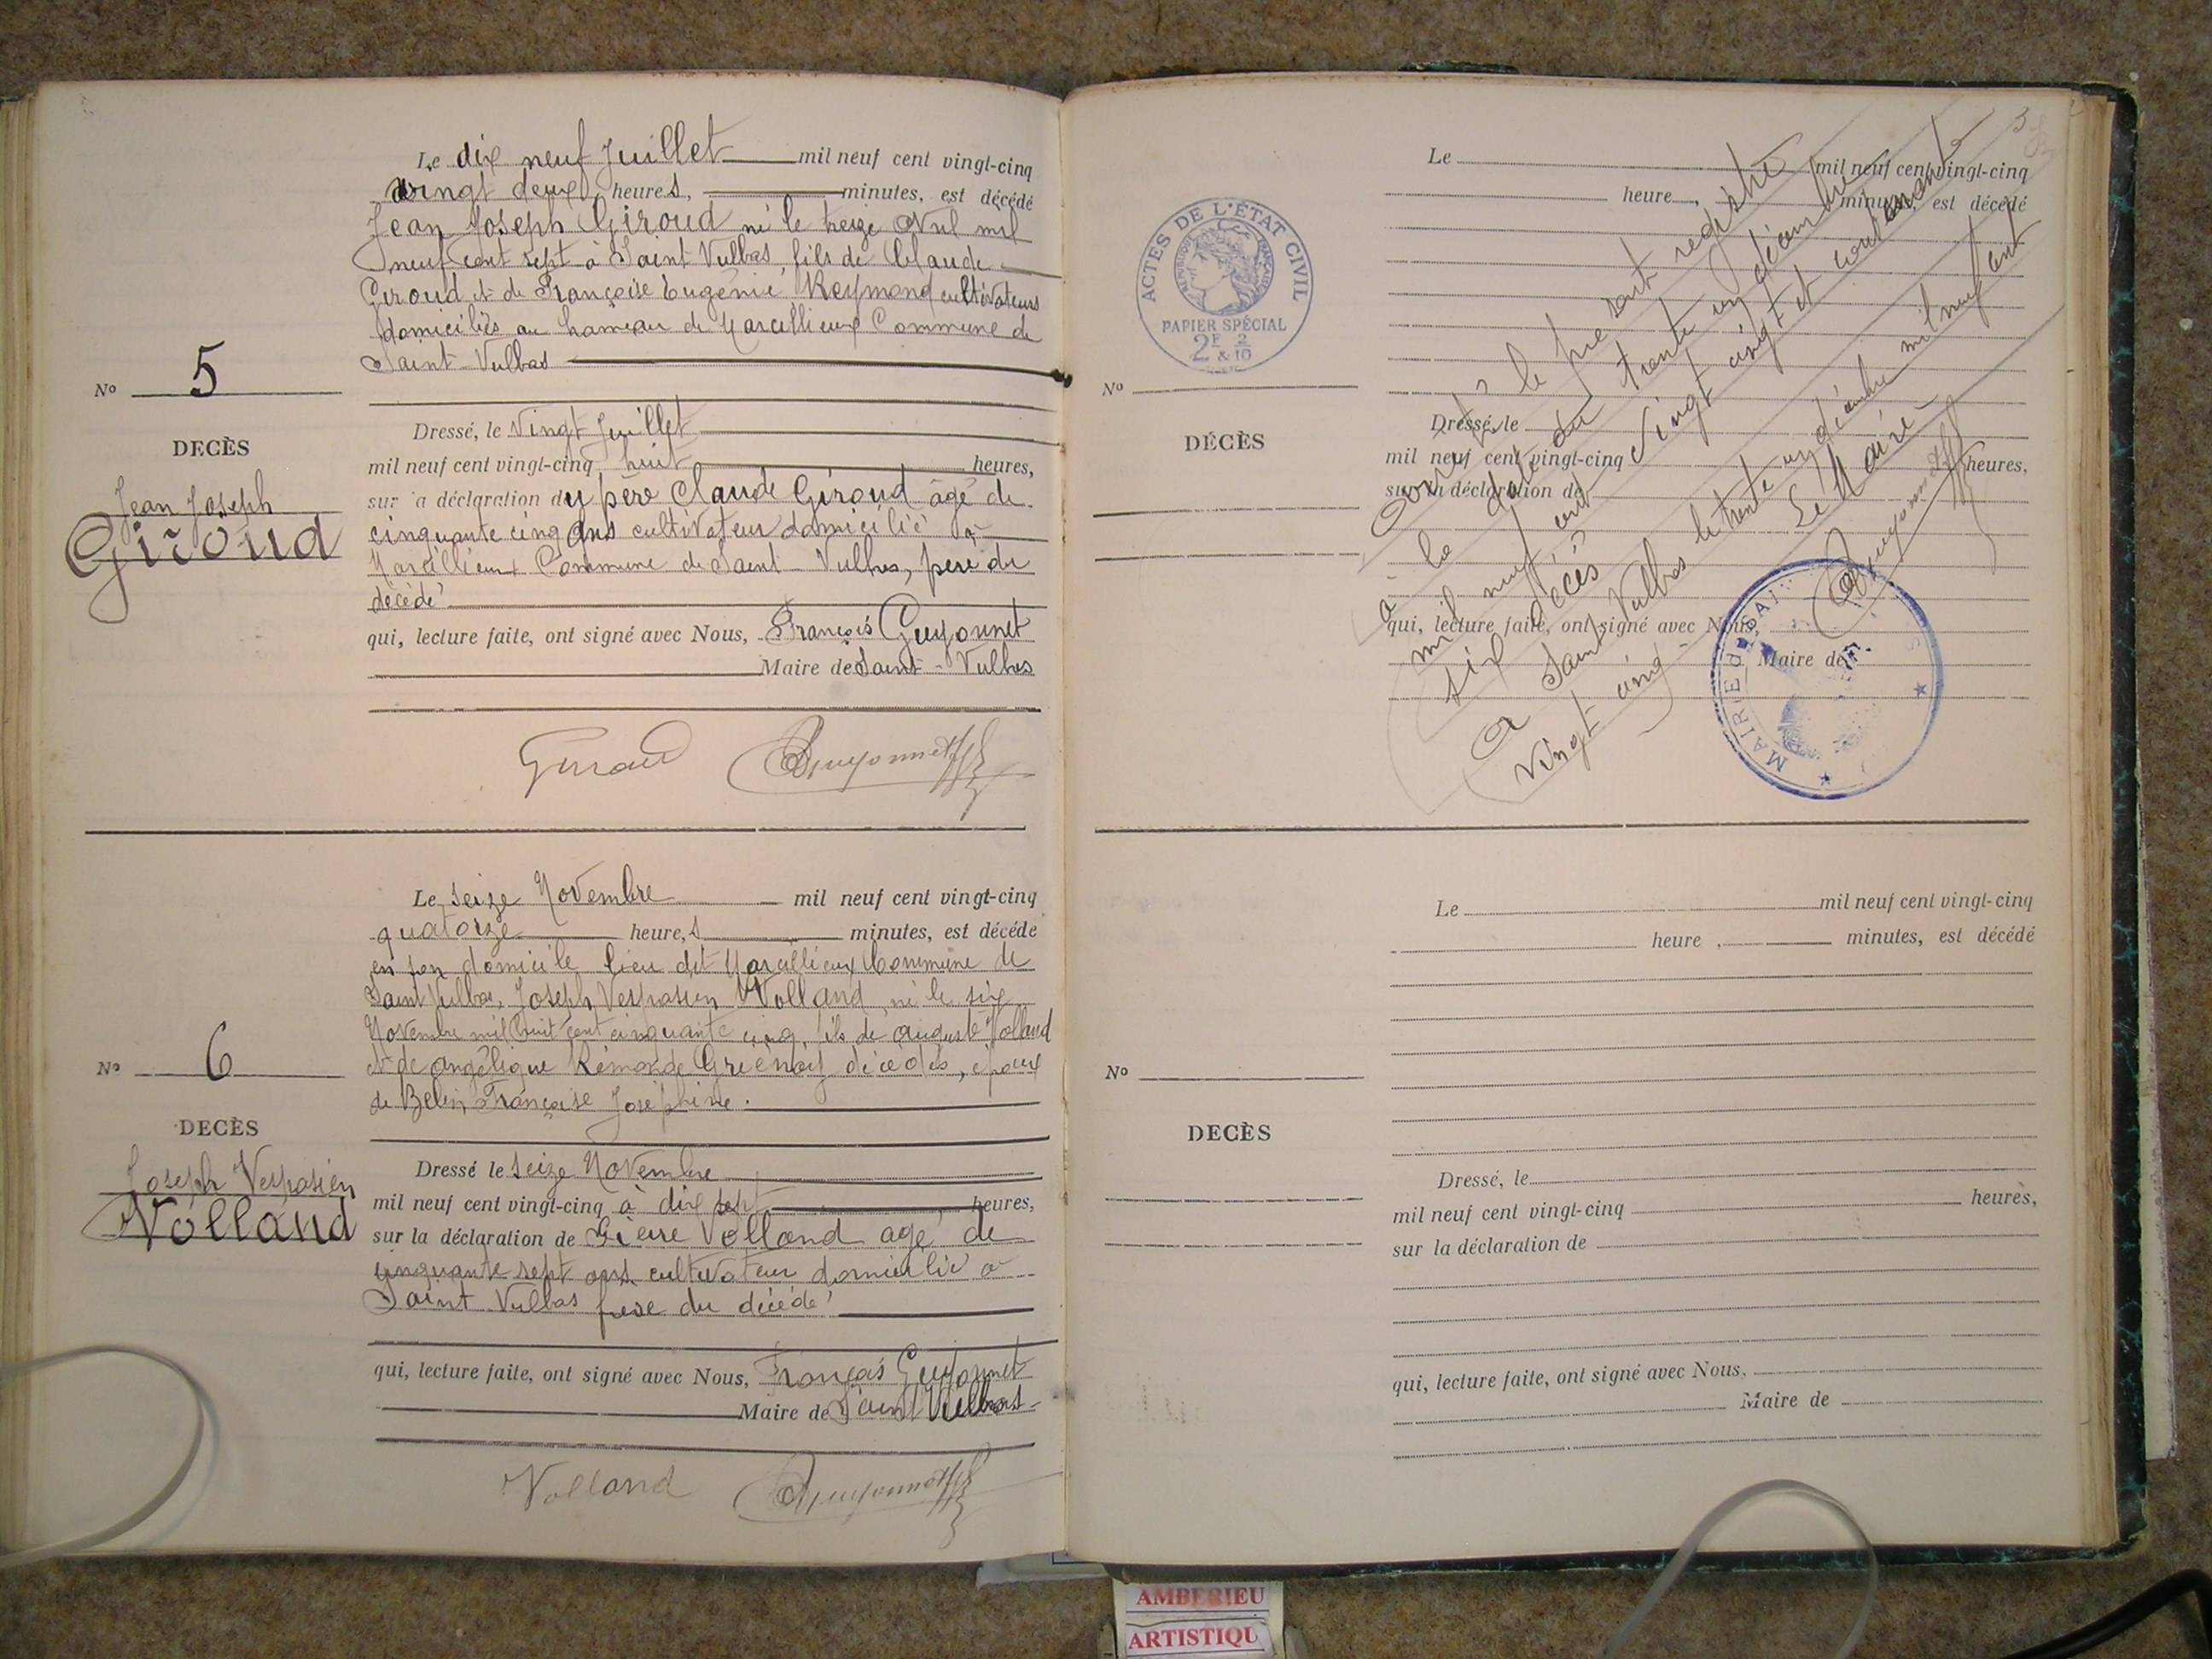 Le dix neuf Juillet mil neuf cent vingt-cinq
vingt deux heures, minutes, est décédé
Jean Joseph Giroud né le treize Avril mil
neuf cent sept à Saint Vulbas, fils de Claude
Giroud et de Françoise Eugénie Reymond cultivateurs
domiciliés au hameau de Marcillieux Commune de
Saint-Vulbas
No 5
DECÈS
Jean Joseph
Giroud
Dressé, le Vingt Juillet
mil neuf cent vingt-cinq huit heures,
sur la déclaration du père Claude Giroud âgé de
cinquante cinq ans cultivateur domicilié à
Marcillieux Commune de Saint-Vulbas, père du
décédé
qui, lecture faite, ont signé avec Nous, François Guyonnet
Maire de Saint-Vulbas
Giroud Guyonnet
Le seize Novembre mil neuf cent vingt-cinq
quatorze heure,s minutes, est décédé
en son domicile lieu dit Marcillieux Commune de
Saint Vulbas, Joseph Vespasien Volland, né le six
Novembre mil huit cent cinquante cinq, fils de Auguste Volland
et de Angélique décédés, époux
de Belin Françoise Joséphine.
No 6
DECÈS
Joseph Vespasien
Volland
Dressé le seize Novembre
mil neuf cent vingt-cinq à dix sept heures,
sur la déclaration de Pierre Volland agé de
cinquante sept ans cultivateur domicilié à
Saint Vulbas frère du décédé
qui, lecture faite, ont signé avec Nous, François Guyonnet
Maire de Saint Vulbas
Volland Guyonnet
ACTES DE L'ÉTAT CIVIL
RÉPUBLIQUE FRANÇAISE
PAPIER SPÉCIAL
2F 2
& 10
Le mil neuf cent vingt-cinq
heure , minutes, est décédé
No
DÉCÈS
Dressé, le
mil neuf cent vingt-cinq heures,
sur la déclaration de
qui, lecture faite, ont signé avec Nous,
Maire de
le présent registre
à la date du trente un décembre
mil neuf cent vingt cinq et contenant
six décès
A Saint Vulbas le trente un décembre mil neuf cent
vingt cinq
Le Maire
Guyonnet
MAIRIE de
Le mil neuf cent vingt-cinq
heure , minutes, est décédé
No
DECÈS
Dressé, le
mil neuf cent vingt-cinq heures,
sur la déclaration de
qui, lecture faite, ont signé avec Nous,
Maire de
AMBERIEU
ARTISTIQU